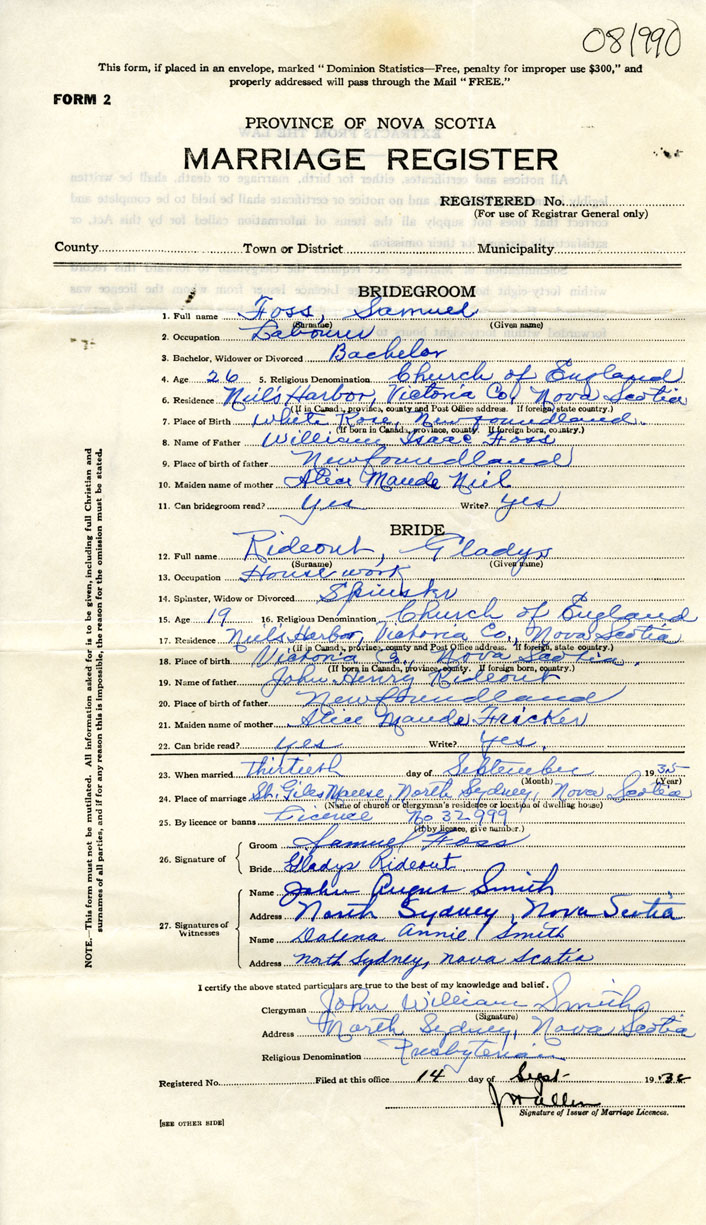 081990
This form, if placed in an envelope, marked "Dominion Statistics—Free, penalty for improper use $300," and
properly addressed will pass through the Mail "FREE."
FORM 2
PROVINCE OF NOVA SCOTIA
MARRIAGE REGISTER
REGISTERED No.
(For use of Registrar General only)
County Town or District Municipality
BRIDEGROOM
1. Full name Foss, Samuel
(Surname) (Given name)
2. Occupation Labourer
3. Bachelor, Widower or Divorced Bachelor
4. Age 26 5. Religious Denomination Church of England
6. Residence Neil's Harbor, Victoria Co, Nova Scotia
(If in Canada, province, county and Post Office address. If foreign, state country.)
7. Place of Birth White Rose, Newfoundland.
(If born in Canada, province, county. If foreign born, country.)
8. Name of Father William Isaac Foss
9. Place of birth of father Newfoundland
10. Maiden name of mother Alice Maude Niel
11. Can bridegroom read? Yes Write? yes
BRIDE
12. Full name Rideout, Gladys
(Surname) (Given name)
13. Occupation House work
14. Spinster, Widow or Divorced Spinster
15. Age 19 16. Religious Denomination Church of England
17. Residence Neil's Harbor, Victoria Co, Nova Scotia
(If in Canada, province, county and Post Office address. If foreign, state country.)
18. Place of birth Victoria Co., Nova Scotia.
(If born in Canada, province, county. If foreign born, country.)
19. Name of father John Henry Rideout
20. Place of birth of father Newfoundland
21. Maiden name of mother Alice Maude Fricker
22. Can bride read? yes Write? yes.
23. When married Thirtieth day of September 1935
(Month) (Year)
24. Place of marriage St. Giles North Sydney, Nova Scotia
(Name of church or clergyman's residence or location of dwelling house)
25. By licence or banns Licence No 32999
(If by licence, give number.)
26. Signature of Groom Samuel Foss
Bride Gladys Rideout
27. Signatures of Witnesses Name John Angus Smith
Address North Sydney, Nova Scotia
Name Annie Smith
Address North Sydney, Nova Scotia
I certify the above stated particulars are true to the best of my knowledge and belief.
Clergyman John William Smith
(Signature)
Address North Sydney, Nova Scotia
Religious Denomination Presbyterian
Registered No. Filed at this office 14 day of Sept 193
Signature of Issuer of Marriage Licences.
[SEE OTHER SIDE]
NOTE.—This form must not be mutilated. All information asked for is to be given, including full Christian and
surnames of all parties, and if for any reason this is impossible, the reason for the omission must be stated.